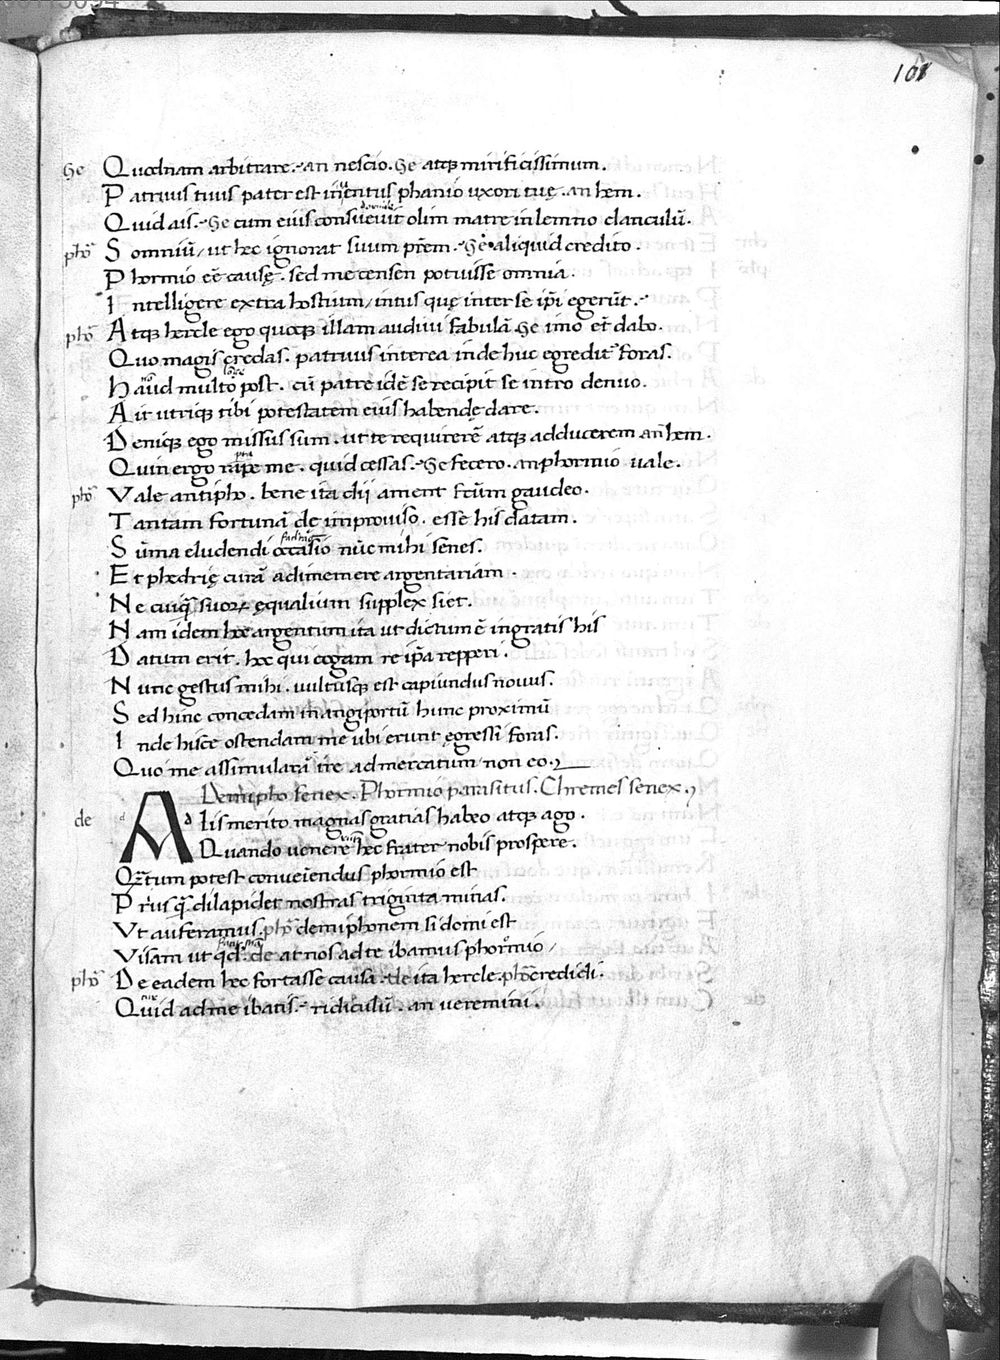 101
Ge Quodnam arbitrare. an nescio. Ge atq; mirificissimum.
Patruus tuus pater est inventus phanio uxori tuę. an hem.
Quid ais. Ge cum eius consuevit olim matre in lemno clanculū.
pho Somniū, ut hec ignorat suum prēm. Ge aliquid credito.
Phormio eē causę. sed me censen potuisse omnia.
Intelligere extra hostium, intus quę inter se ipi egerūt.
pho Atq; hercle ego quoq; illam audiui fabulā. Ge imo et dabo.
Quo magis credas. patruus interea inde huc egredit foras.
Haud multo post. cū patre idē se recipit se intro denuo.
Ait utriq; tibi potestatem eius habendę dare.
Deniq; ego missus sum. ut te requirerē atq; adducerem an hem.
Quin ergo rape me. quid cessas. Ge fecero. an phormio uale.
pho Vale antipho. bene ita dij ament fcūm gaudeo.
Tantam fortunā de improuiso. esse his datam.
Sūma eludendi occasio nūc mihi senes.
Et phedrię curā adimemere argentariam.
Ne cuiq suor ęqualium supplex siet.
Nam idem hoc argentum ita ut dictum ē ingratis his
Datum erit. hoc qui cogam re ipa repperi.
Nunc gestus mihi. uultusq; est capiundus nouus.
Sed hinc concedam in angiportū hunc proximū
Inde hisce ostendam me ubi erunt ęgressi foras.
Quo me assimularā ire ad mercatum non eo.
Demipho senex. Phormio parasitus. Chremes senex.
de A dis merito magnas gratias habeo atq; ago.
Quando uenere hec frater nobis prospere.
Qztum potest conueiendus phormio est
Prius q dilapidet nostras triginta minas.
Vt auferamus. pho demiphonem si domi est
Visam ut qd. de at nos ad te ibamus phormio
pho De eadem hec fortasse causa. de ita hercle. pho credidi.
Quid ad me ibatis. ridiculū. an veremini.